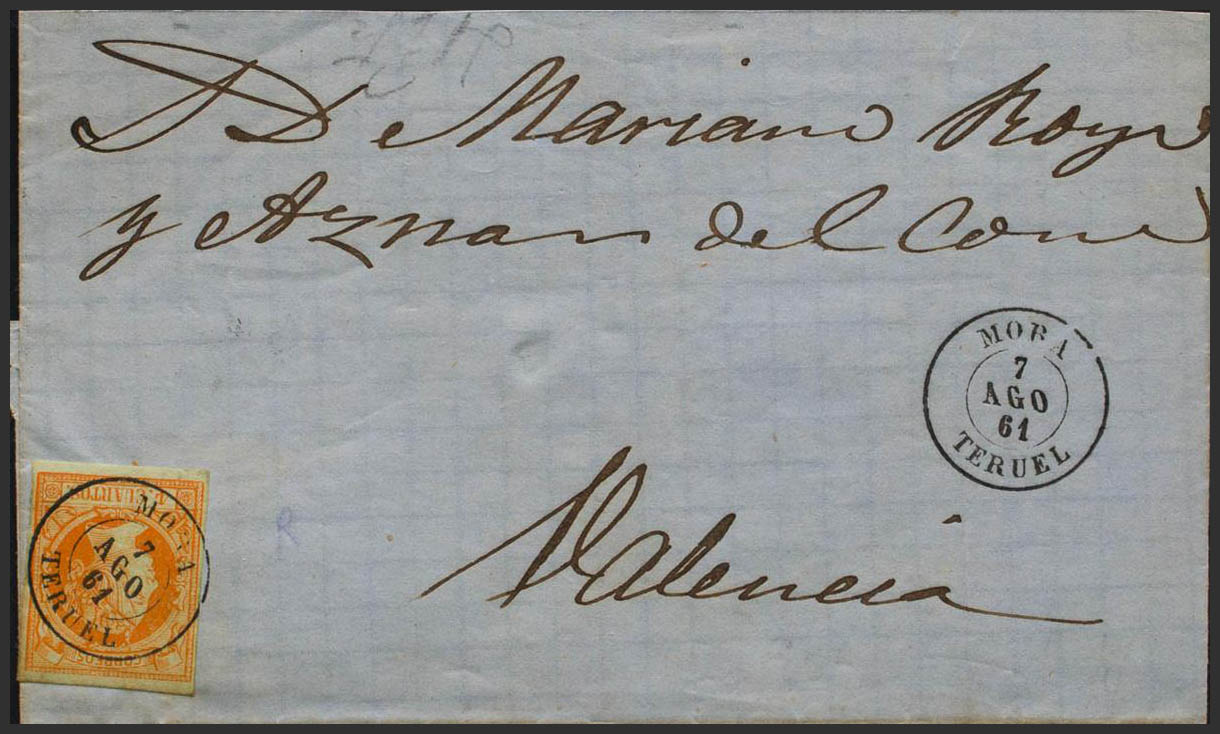 Sr De Mariano Royo
y Aznar del Come
MORA
7
AGO
61
TERUEL
Valencia
4 CUARTOS
MORA
7
AGO
61
TERUEL
CORREOS
R